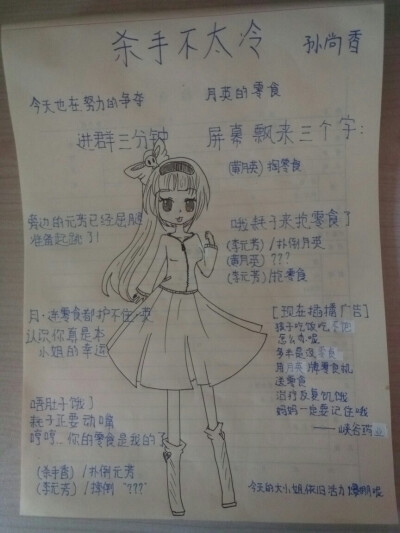 杀手不太冷 孙尚香
今天也在努力的争夺 月英的零食
进群三分钟 屏幕飘来三个字:
(黄月英) 掏零食
旁边的元芳已经是
准备起
哦耗子来抢零食了
(李元芳) /扑倒月英
(黄月英) ???
(李元芳) /吃零食
月·连零食都护不住·英
认识你真是本
小姐的幸运
[现在插播广告]
孩子吃饭吃
怎么办呢
多半是
用月英牌零食机
送零食
治疗反复饥饿
妈妈一定要记住哦
——峡谷药
唔肚子饿了
耗子正要动嘴
哼哼…你的零食是我的了
(杀手香) /扑倒元芳
(李元芳) /摔倒 “???”
今天的大小姐依旧活力爆棚呢